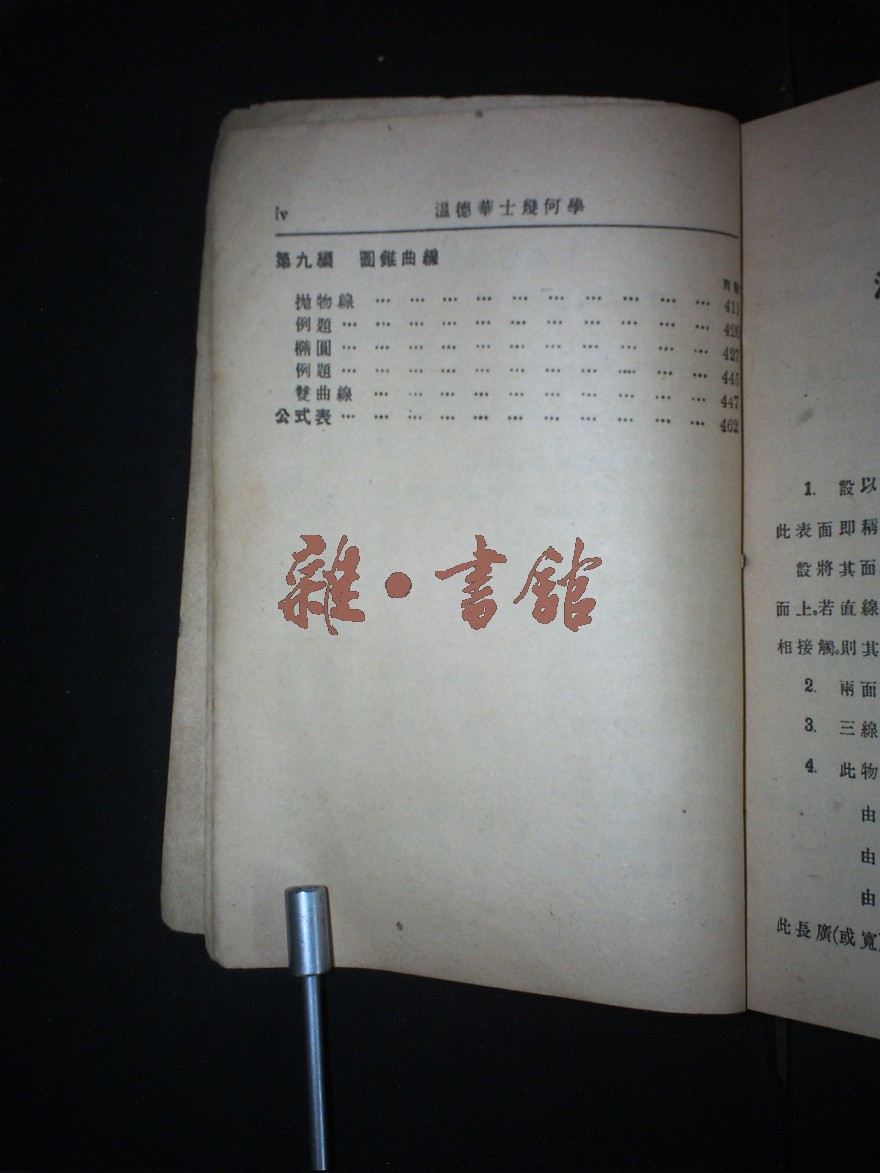 iv 溫德華士幾何學
第九編 圓錐曲線
頁數
拋物線 … … … … … … … … … … 411
例題 … … … … … … … … … … … 426
橢圓 … … … … … … … … … … … 427
例題 … … … … … … … … … … … 445
雙曲線 … … … … … … … … … … 447
公式表 … … … … … … … … … … … 462
雜·書館
1. 設以
此表面即稱
設將其面
面上。若直線
相接觸。則其
2. 兩面
3. 三線
4. 此物
由
由
由
此長廣(或寬)